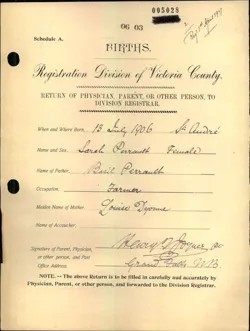 005028
06 03
Schedule A.
BIRTHS.
Registration Division of Victoria County.
RETURN OF PHYSICIAN, PARENT, OR OTHER PERSON, TO
DIVISION REGISTRAR.
When and Where Born, 13 July 1906 St André
Name and Sex, Sarah Perrault Female
Name of Father, Basil Perrault
Occupation, Farmer
Maiden Name of Mother, Louise Dionne
Name of Accoucher,
Signature of Parent, Physician,
or other person, and Post
Office Address
Grand Falls N.B.
NOTE. — The above Return is to be filled in carefully and accurately by
Physician, Parent, or other person, and forwarded to the Division Registrar.